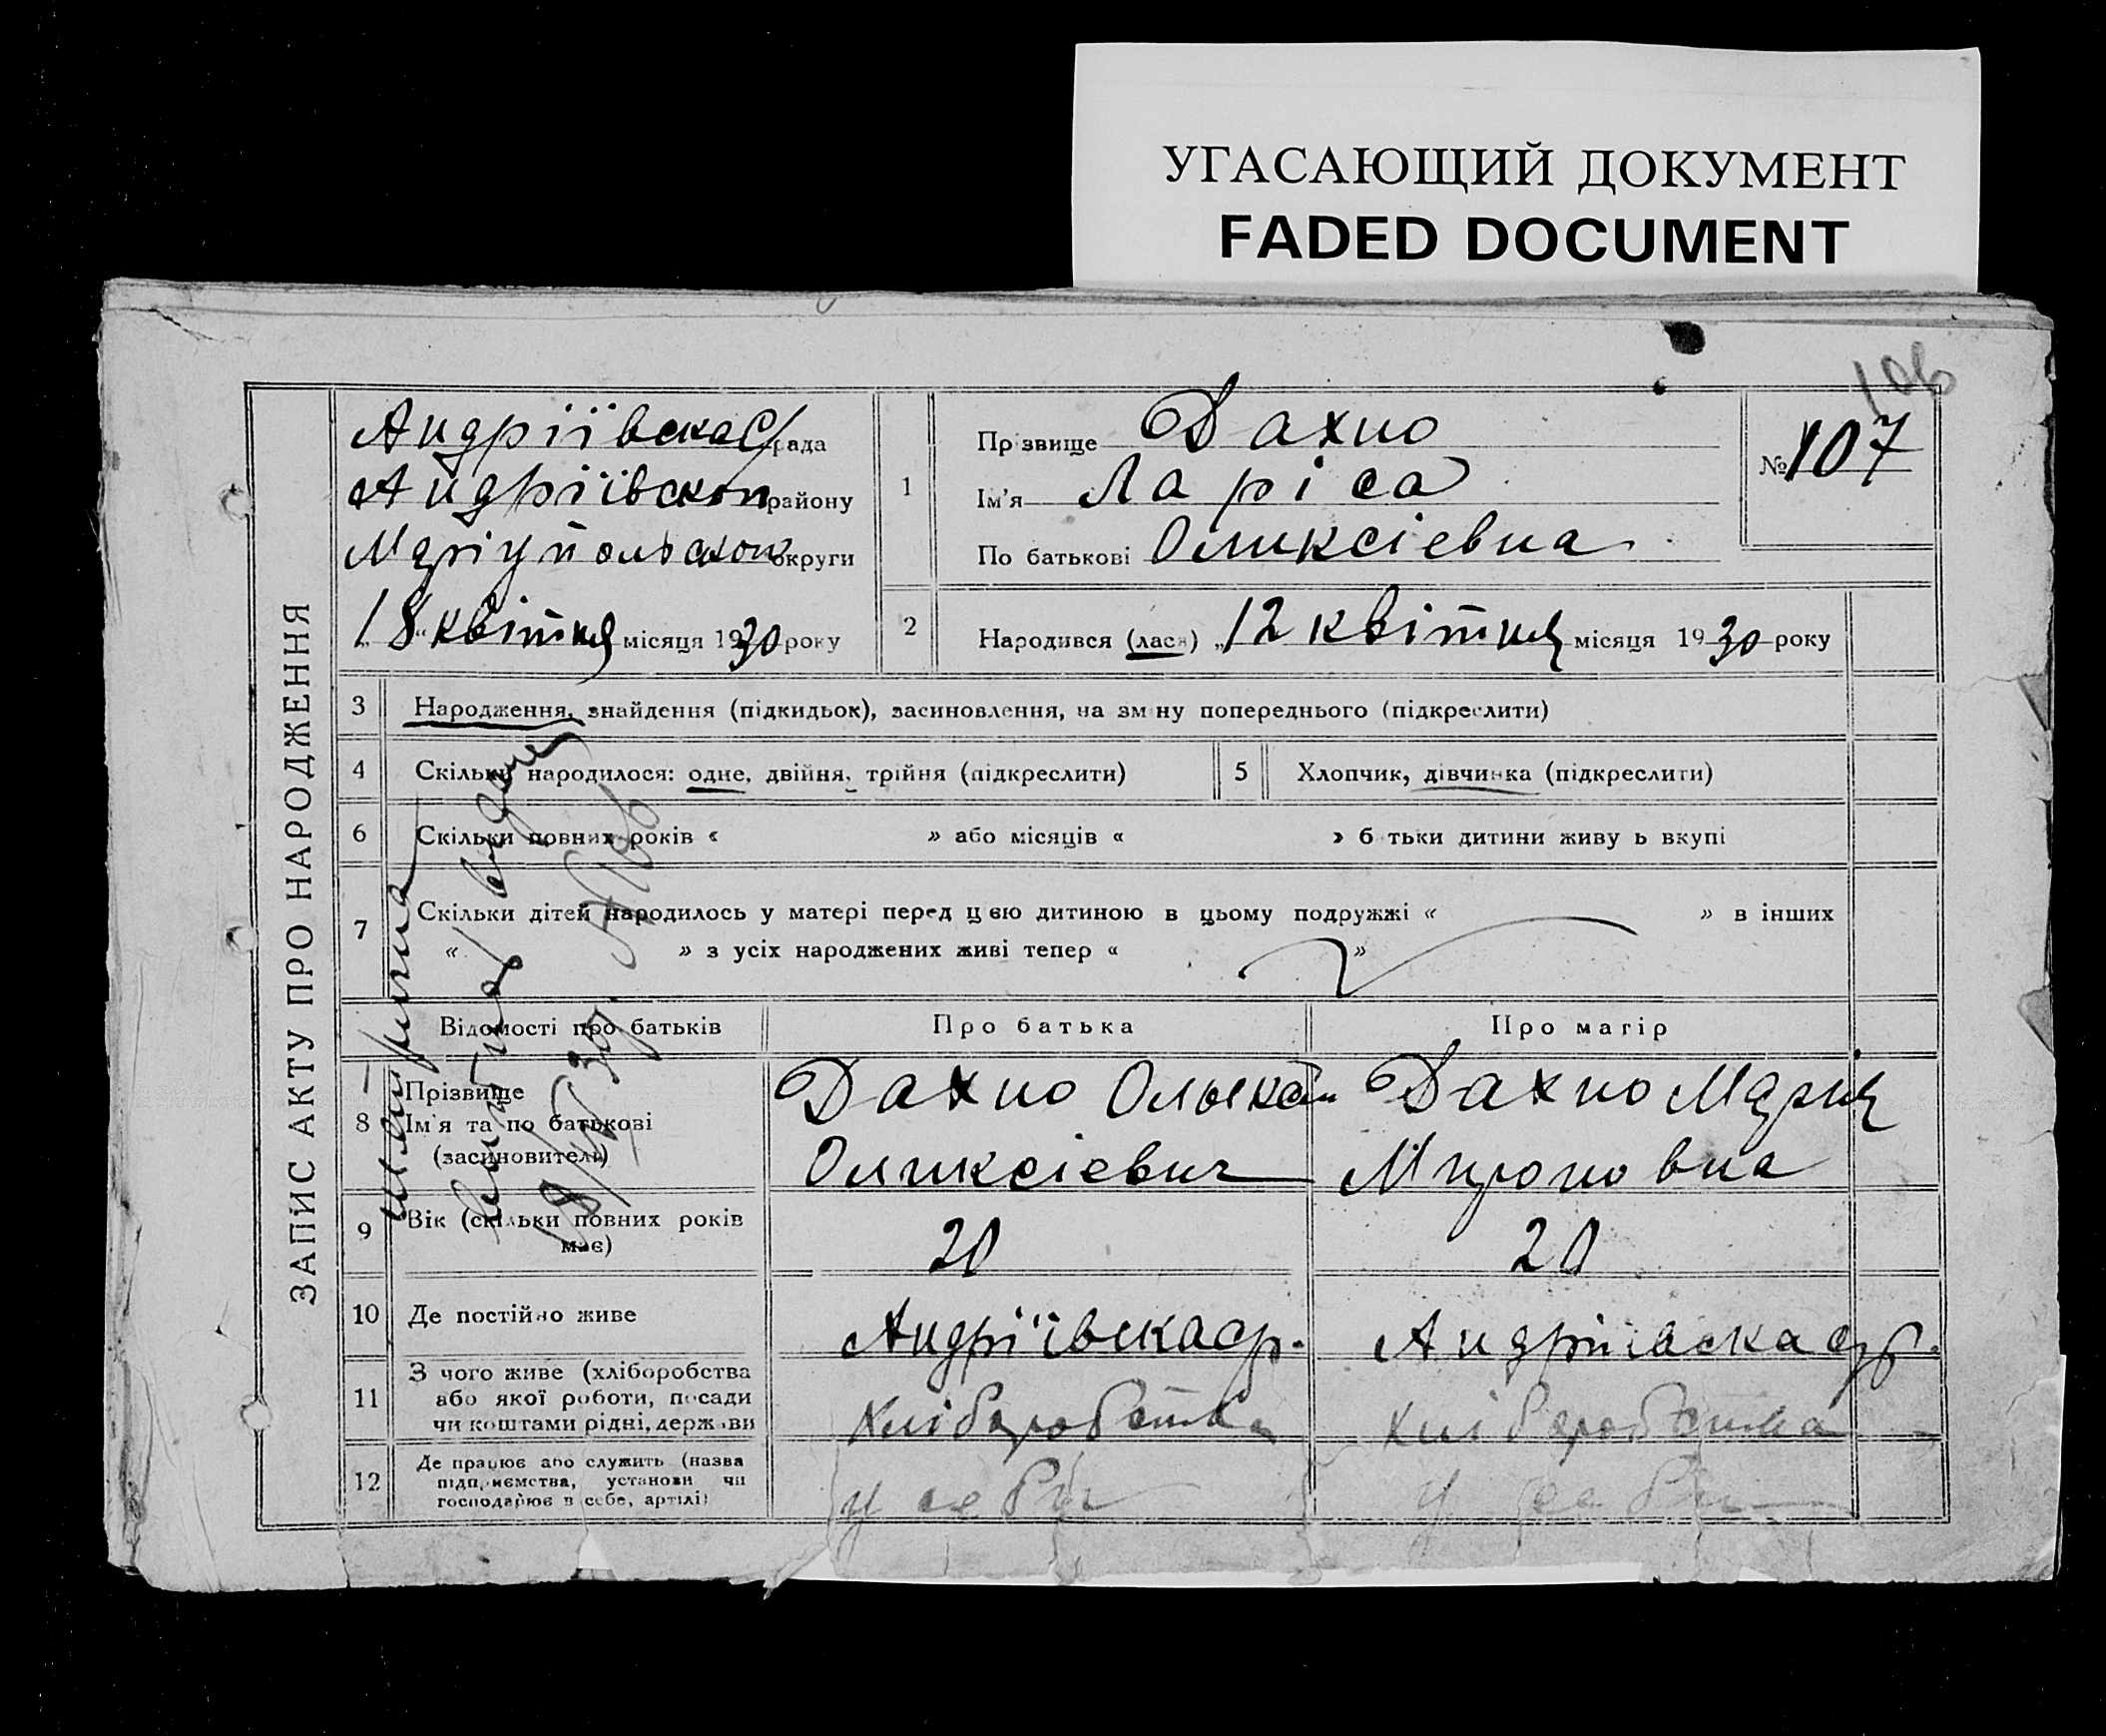 УГАСАЮЩИЙ ДОКУМЕНТ
FADED DOCUMENT
106
ЗАПИС АКТУ ПРО НАРОДЖЕННЯ
Андріївска С/рада
Андріївскоп району
Маріупольскои округи
„18“ квітня місяця 1930 року
1
Прзвище Дахно
Ім'я Ларіса
По батькові Оликсіевна
№ 107
2 Народився (лася) „12 квітня місяця 1930 року
3 Народження, знайдення (підкидьок), засиновлення, на зм ну попереднього (підкреслити)
4 Скільки народилося: одне, двійня, трійня (підкреслити)
5 Хлопчик, дівчинка (підкреслити)
6 Скільки повних років « » або місяців « » б тьки дитини живу ь вкупі
7 Скільки дітей народилось у матері перед цією дитиною в цьому подружжі « » в інших
« » з усіх народжених живі тепер « »
Відомості про батьків Про батька Про матір
8 Прізвище
Ім'я та по батькові
(засиновителі)
Дахно
Оликсіевич
Дахно Мария
Мироновна
9 Вік (скільки повних років
має)
20 20
10 Де постійно живе Андріївска ср. Андріївска
11 З чого живе (хліборобства
або якої роботи, посади
чи коштами рідні, держави
Хліборобства Хліборобства
12 Де працює або служить (назва
підприємства, установи чи
господарює в себе, артілі)
у себи у себи
18/IV 30р.